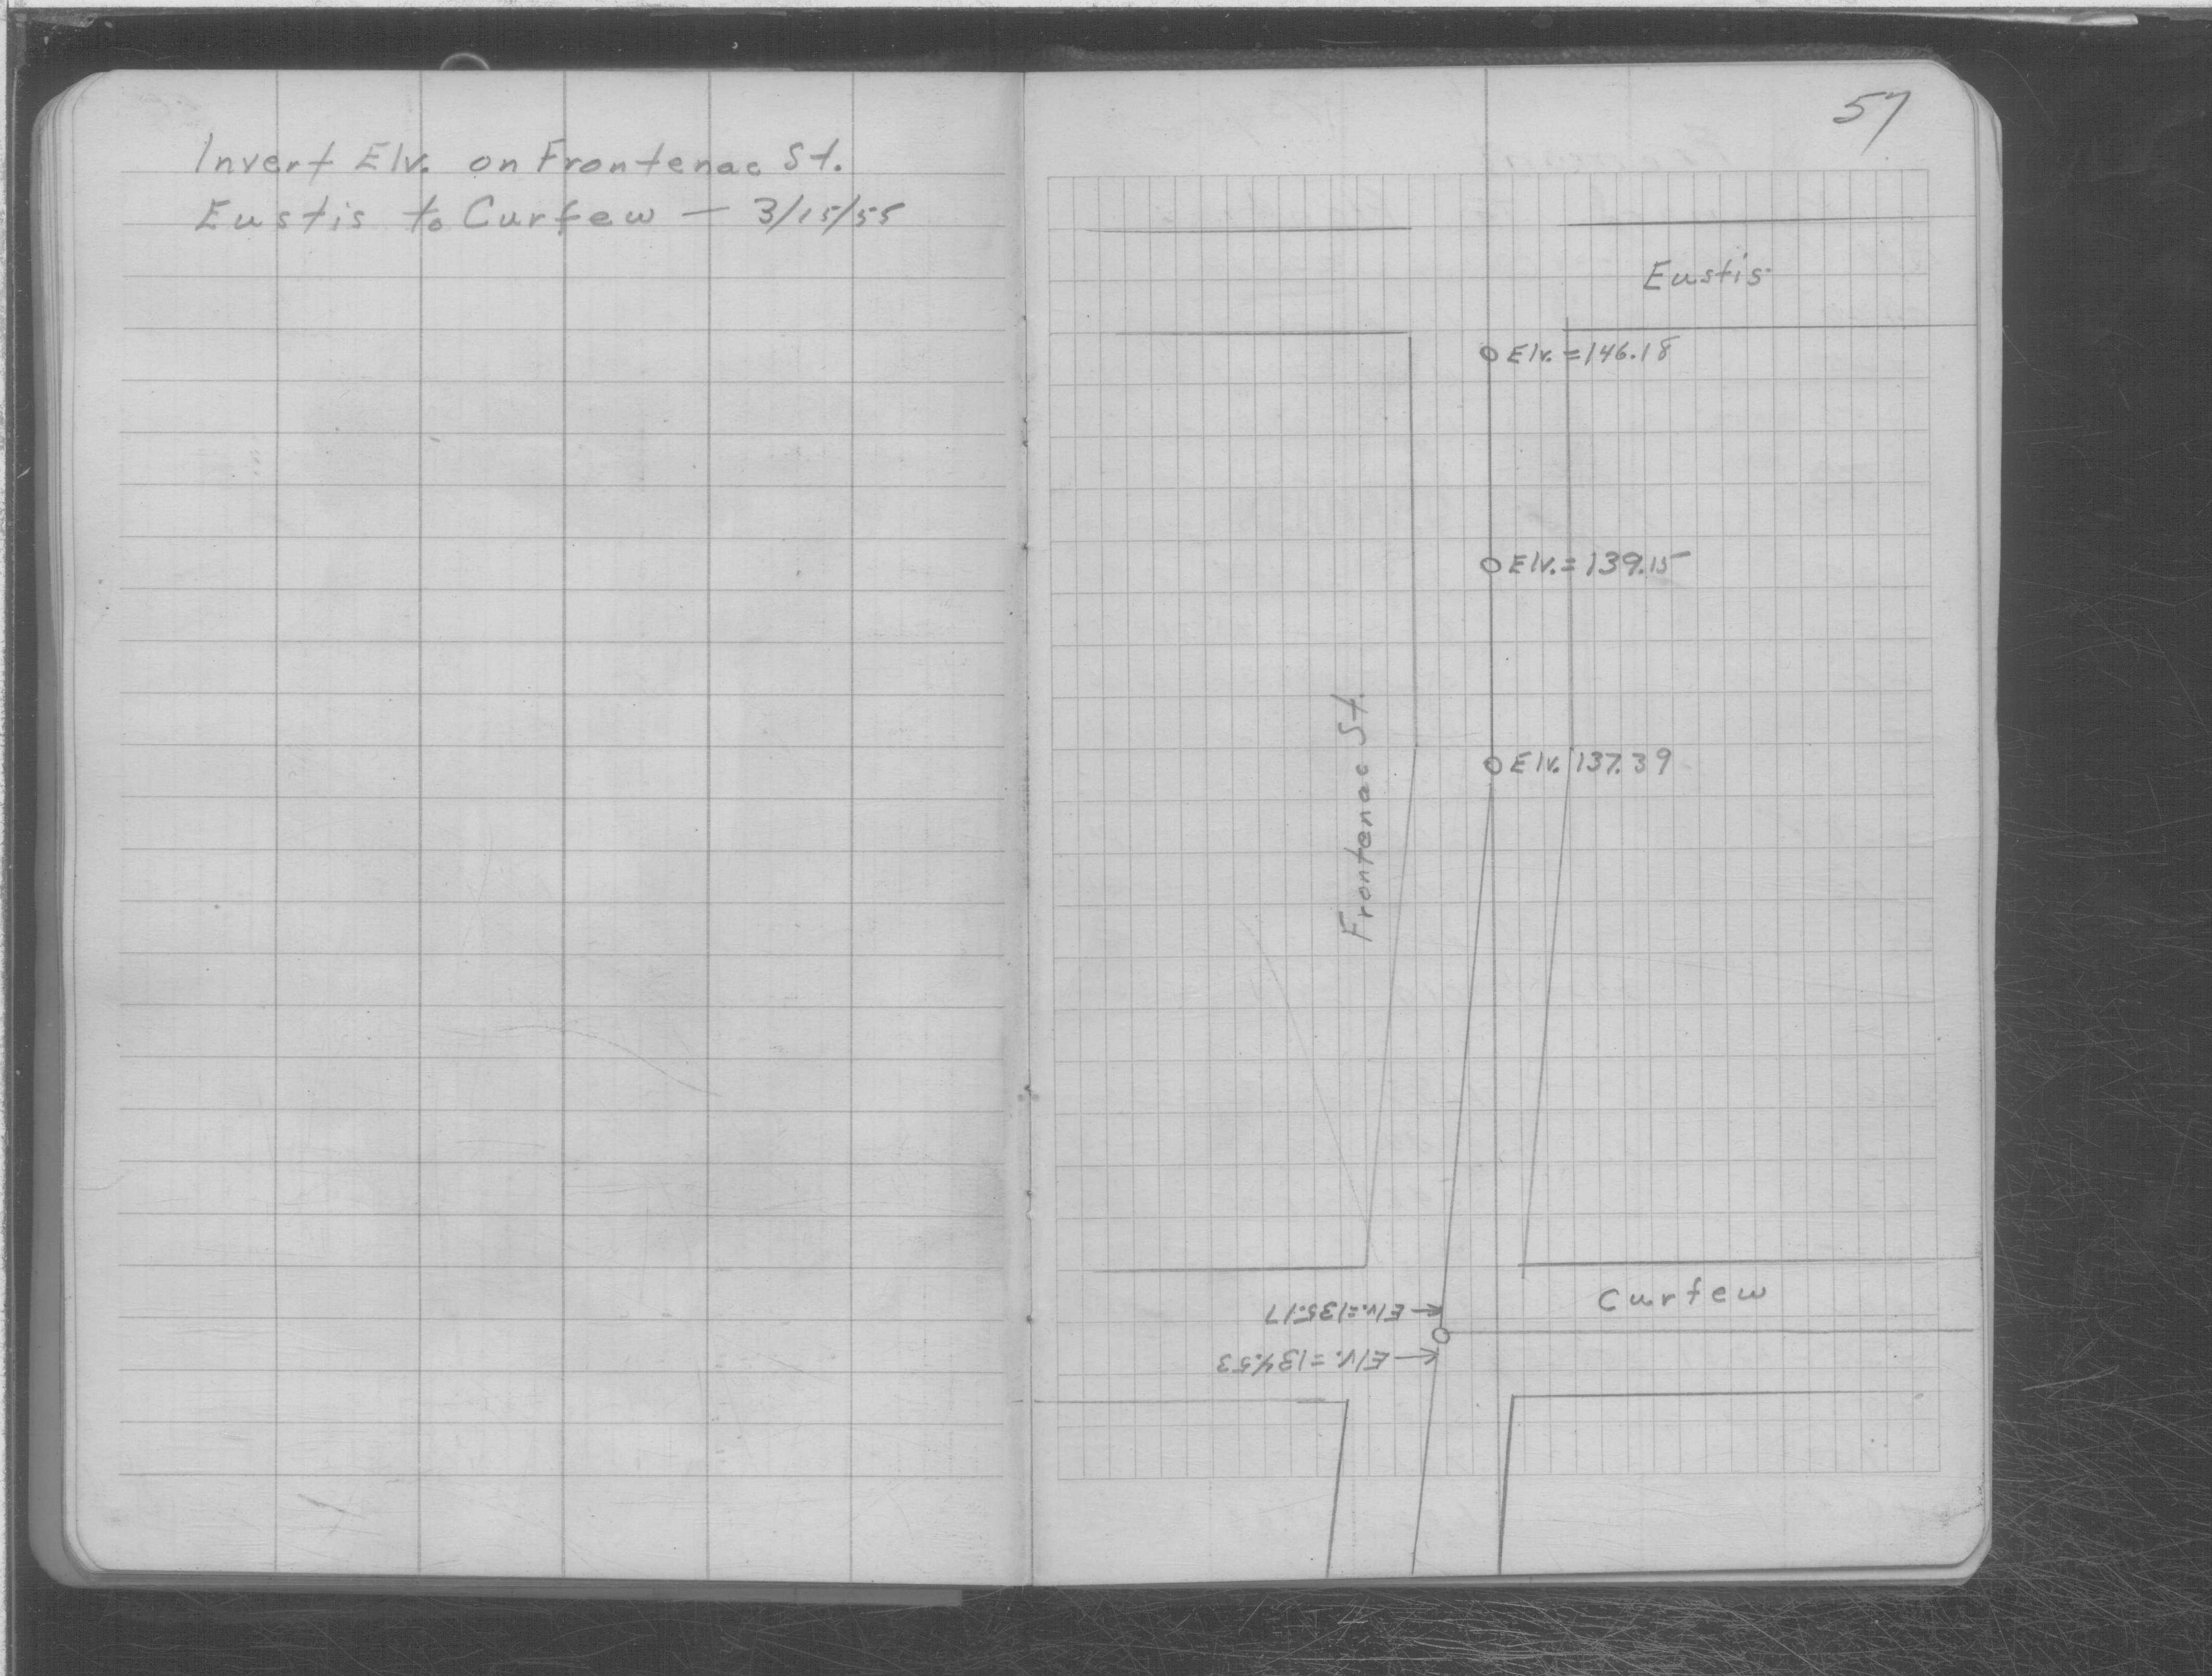 Invert Elv. on Frontenac St.
Eustis to Curfew — 3/15/55
57
Eustis
Elv. = 146.18
Elv. = 139.15
Elv. 137.39
Frontenac St.
Curfew
Elv. = 135.17
Elv. = 134.53